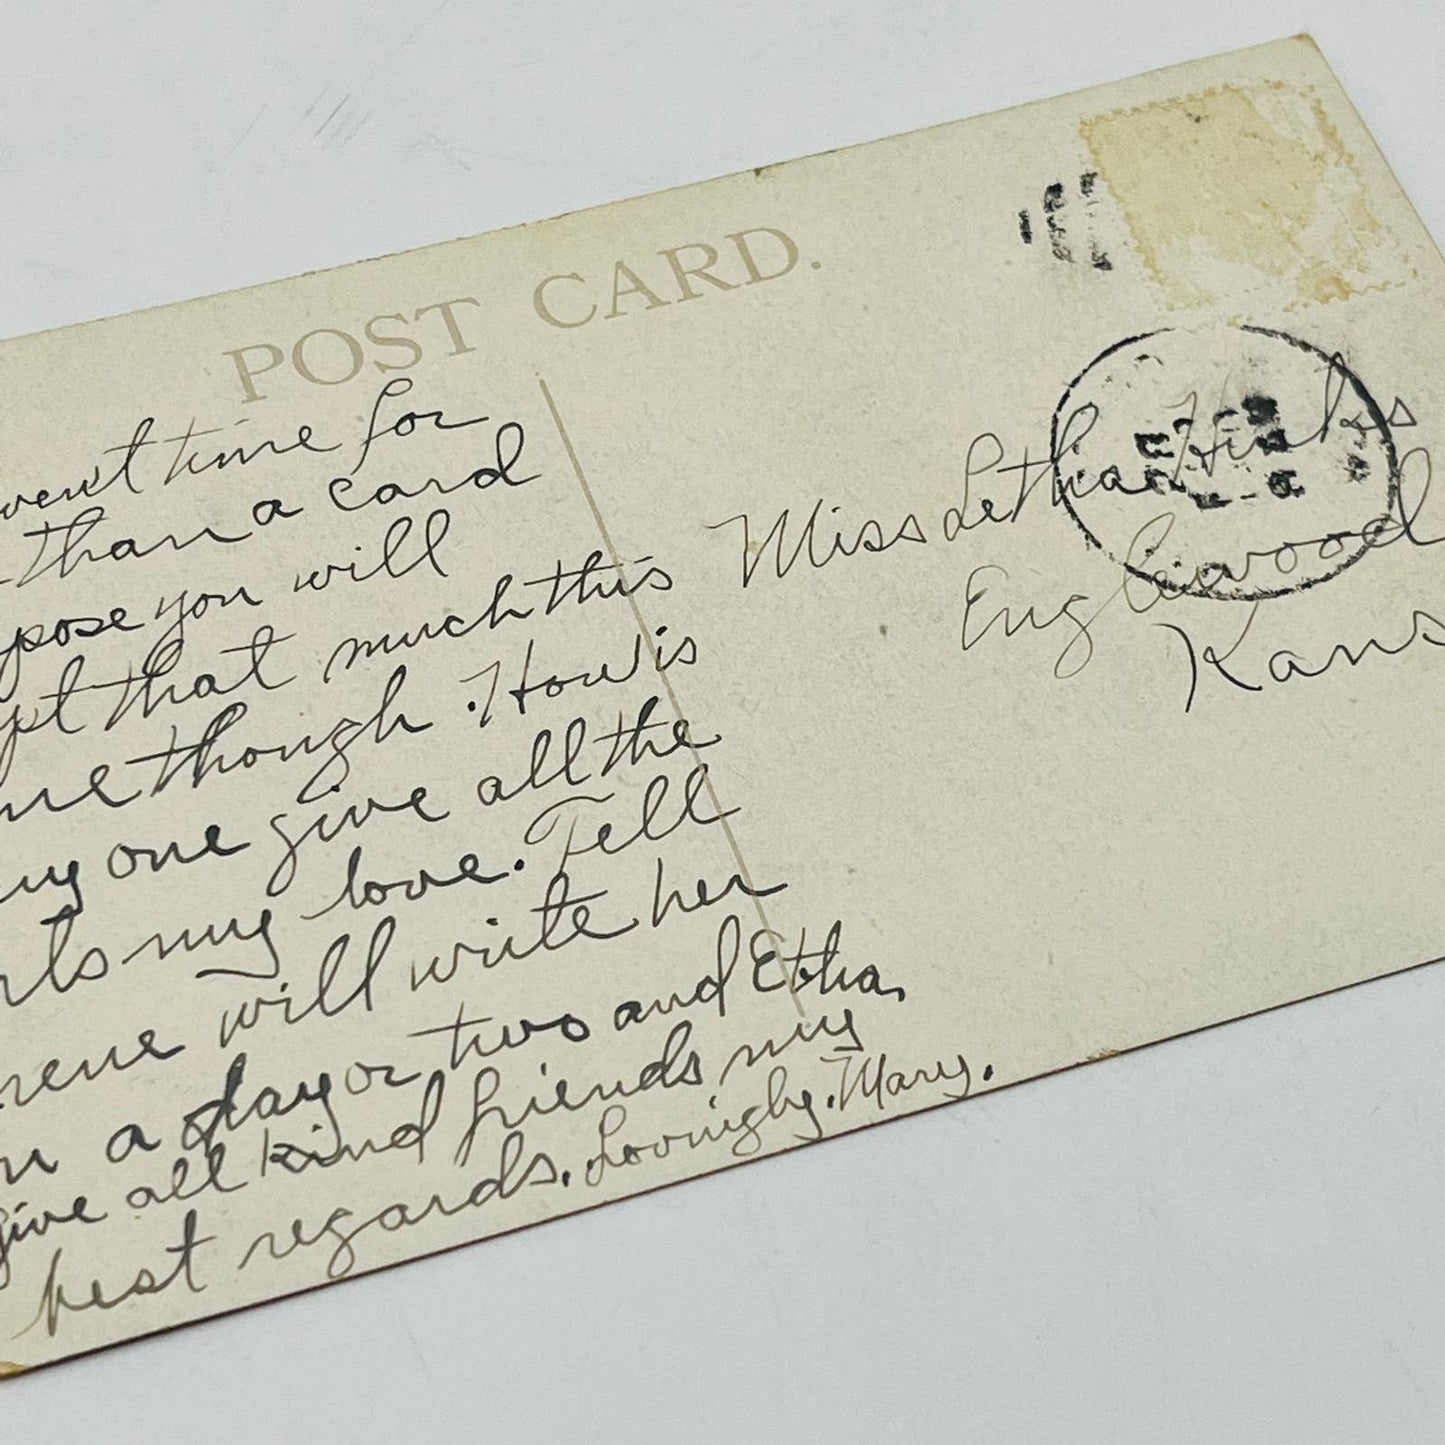 POST CARD.
time for
than a card
you will
that much this
me though. How is
one give all the
my love. Tell
will write her
a day or two and Etha.
give all kind friends my
best regards. Lovingly. Mary.
Miss Letha Hinks
Englewood
Kans